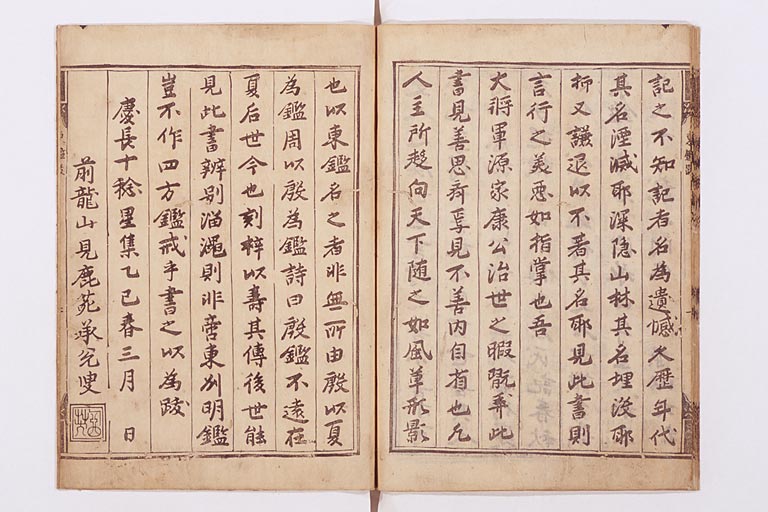 記之不知記者名為遺憾久歴年代
其名湮滅耶深隠山林其名埋没耶
抑又謙退以不著其名耶見此書則
言行之美悪如指掌也吾
大將軍源家康公治世之暇翫弄此
書見善思斉焉見不善内自省也凡
人主所趍向天下随之如風草形影
也以東鑑名之者非無所由殷以夏
為鑑周以殷為鑑詩曰殷鑑不遠在
夏后世今也刻梓以壽其傳後世能
見此書辨别淄澠則非啻東州明鑑
豈不作四方鑑戒乎書之以為跋
慶長十稔星集乙巳春三月　日
前龍山見鹿苑承兌叟